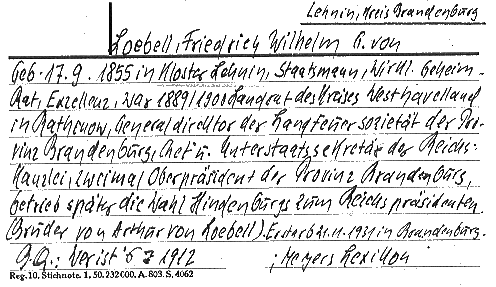 Lehnin, Kreis Brandenburg
Loebell, Friedrich Wilhelm v. von
Geb. 17.9.1855 in Kloster Lehnin, Staatsmann, Wirkl. Geheim.
Rat, Exzellenz, war 1889/1900 Landrat des Kreises Westhavelland
in Rathenow, Generaldirektor der Landfeuersozietät der Pro-
vinz Brandenburg, Chef u. Unterstaatssekretär der Reichs-
kanzlei, zweimal Oberpräsident der Provinz Brandenburg,
betrieb später die Wahl Hindenburgs zum Reichspräsidenten
(Bruder von Arthur von Loebell). Er starb 21.11.1931 in Brandenburg.
Wer ist's 1912 ; Meyers Lexikon
Reg. 10. Stichnote. 1, 50. 232 000. A. 803. S. 4062